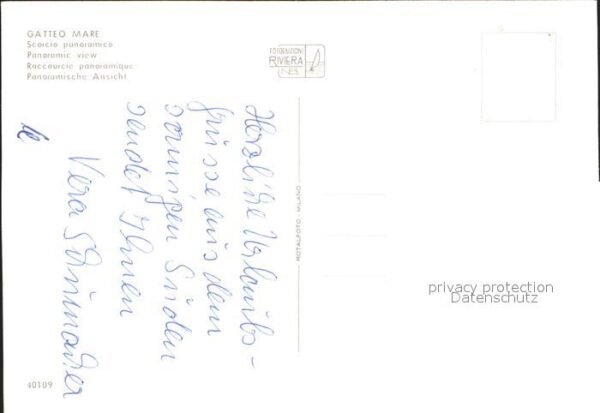 GATTEO MARE
Scorcio panoramico
Panoramic view
Raccourcie panoramique
Panoramische Ansicht
FOTOEDIZIONI
RIVIERA
Herzliche Urlaubs-
grüsse aus dem
sonnigen Süden
sendet Ihnen
Vera
ROTALFOTO - MILANO
privacy protection
Datenschutz
40109